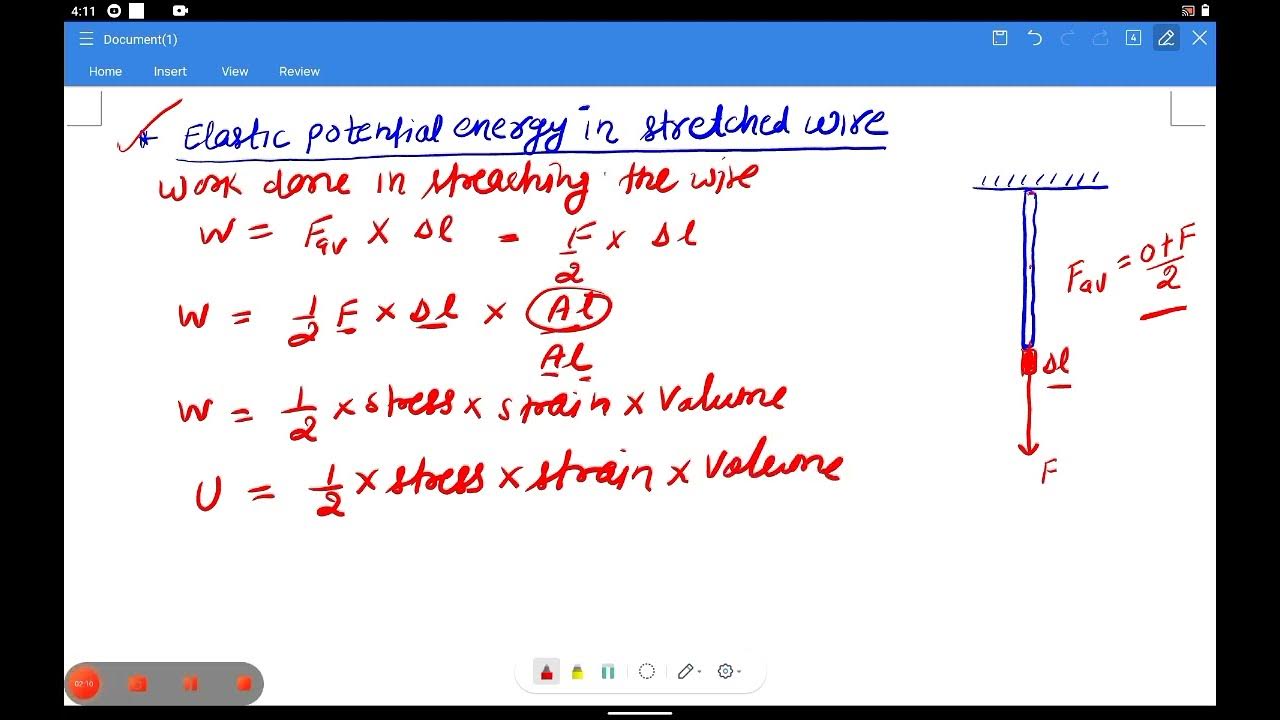 4:11
Document(1)
4
Home Insert View Review
* Elastic potential energy in stretched wire
work done in streaching the wire
W = Fav × Δl = F/2 × Δl
W = 1/2 F × Δl × Al/Al
W = 1/2 × stress × strain × Volume
U = 1/2 × stress × strain × Volume
Fav = 0+F/2
Δl
F
02:10